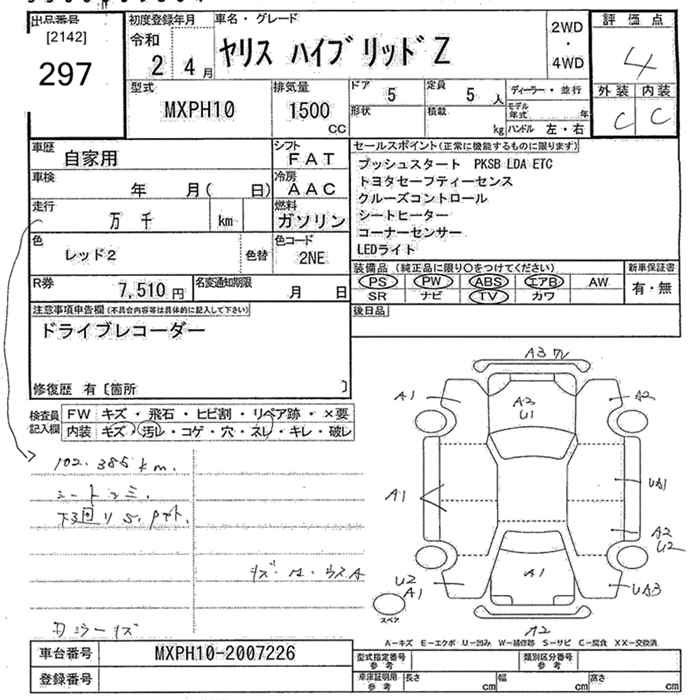 出品番号
[2142]
297
初度登録年月
令和
2 4月
車名・グレード
ヤリス ハイブリッド Z
2WD
・
4WD
評価点
4
外装 内装
C C
型式
MXPH10
排気量
1500
CC
ドア
5
定員
5 人
ディーラー・並行
形状
積載
kg
モデル年式 年
ハンドル 左・右
車歴
自家用
シフト
FAT
車検
年 月( 日)
冷房
AAC
走行
万 千 km
燃料
ガソリン
色
レッド2
色替
色コード
2NE
R券
7,510円
名変通知期限
月 日
セールスポイント(正常に機能するものに限ります)
プッシュスタート PKSB LDA ETC
トヨタセーフティーセンス
クルーズコントロール
シートヒーター
コーナーセンサー
LEDライト
装備品 (純正品に限り○をつけてください)
PS PW ABS エアB AW
SR ナビ TV カワ
新車保証書
有・無
後日品
注意事項申告欄(不具合内容等は具体的に記入して下さい)
ドライブレコーダー
修復歴 有〔箇所 〕
検査員
記入欄
FW キズ・飛石・ヒビ割・リペア跡・×要
内装 キズ・汚レ・コゲ・穴・スレ・キレ・破レ
102,385km.
A3 ワレ
A1
A2
A2
U1
A1
UA1
A2
U2
U2
A1
A1
UA3
A2
スペア
A-キズ E-エクボ U-凹み W-補修跡 S-サビ C-腐食 XX-交換済
車台番号
MXPH10-2007226
登録番号
型式指定番号
参考
類別区分番号
参考
車庫証明用
参考
長さ cm
幅 cm
高さ cm